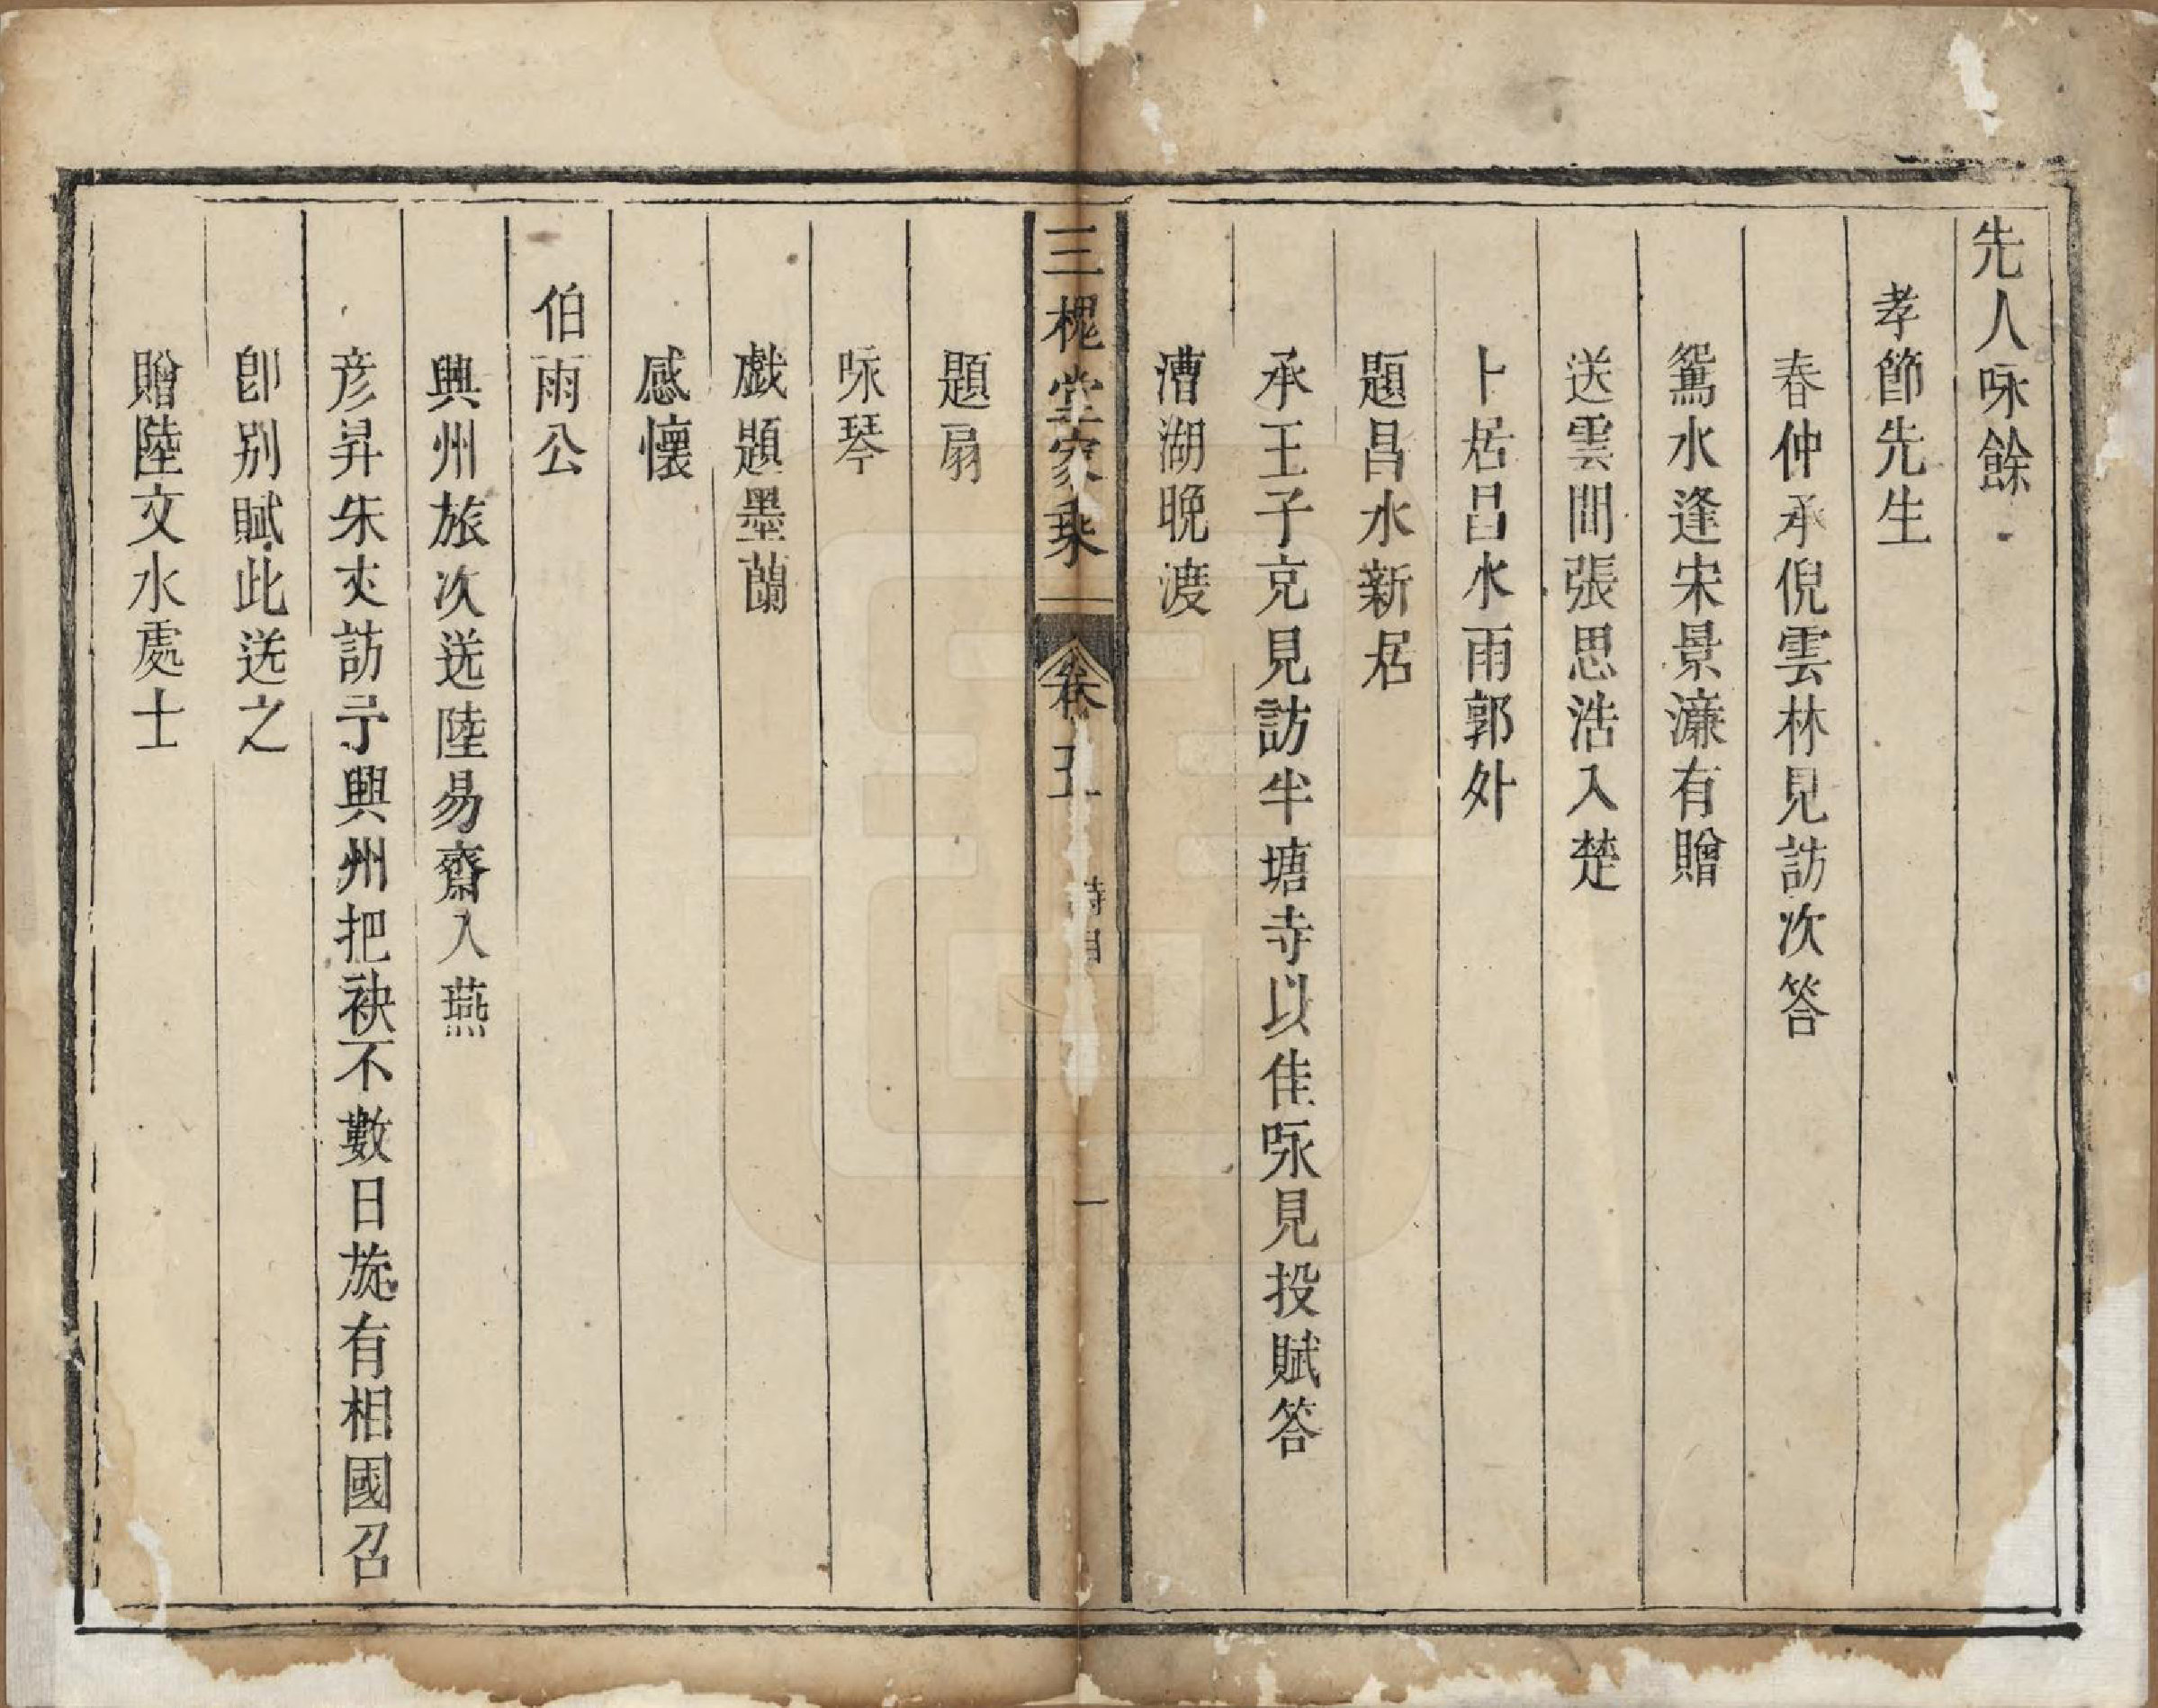 先人咏餘
孝節先生
春仲承倪雲林見訪次答
鴛水逢宋景濂有贈
送雲間張思浩入楚
卜居昌水雨郭外
題昌水新居
承王子克見訪半塘寺以佳咏見投賦答
漕湖晚渡
三槐堂家乘
卷五
詩目
一
題扇
咏琴
戲題墨蘭
感懷
伯雨公
興州旅次送陸易齋入燕
彦昇朱丈訪予興州把袂不數日旋有相國召
卽别賦此送之
贈陸文水處士